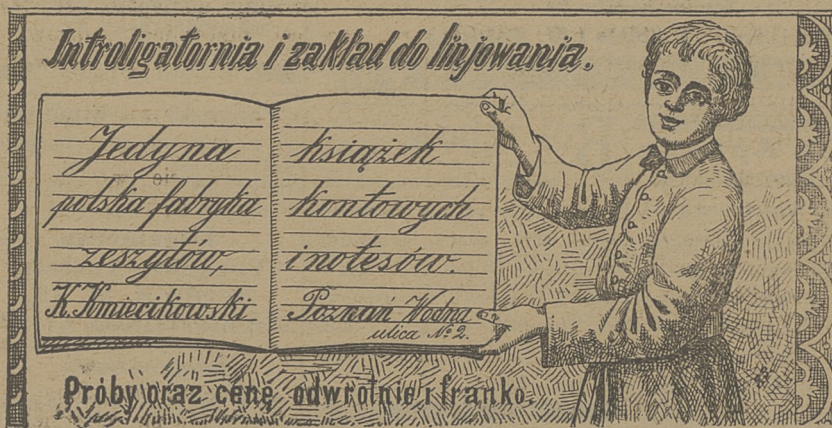 Introligatornia i zakład do linjowania.
Jedyna
polska fabryka
zeszytów,
K. Kmiecikowski
książek
kontowych
i notesów.
Poznań Wodna
ulica № 2.
Próby oraz cenę odwrotnie i franko.